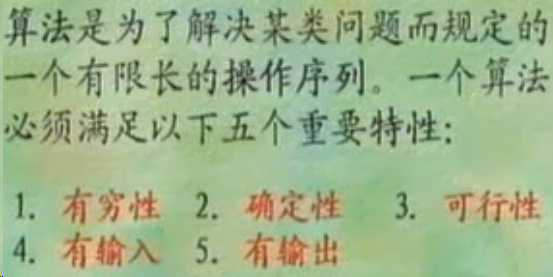 算法是为了解决某类问题而规定的
一个有限长的操作序列。一个算法
必须满足以下五个重要特性:
1. 有穷性 2. 确定性 3. 可行性
4. 有输入 5. 有输出